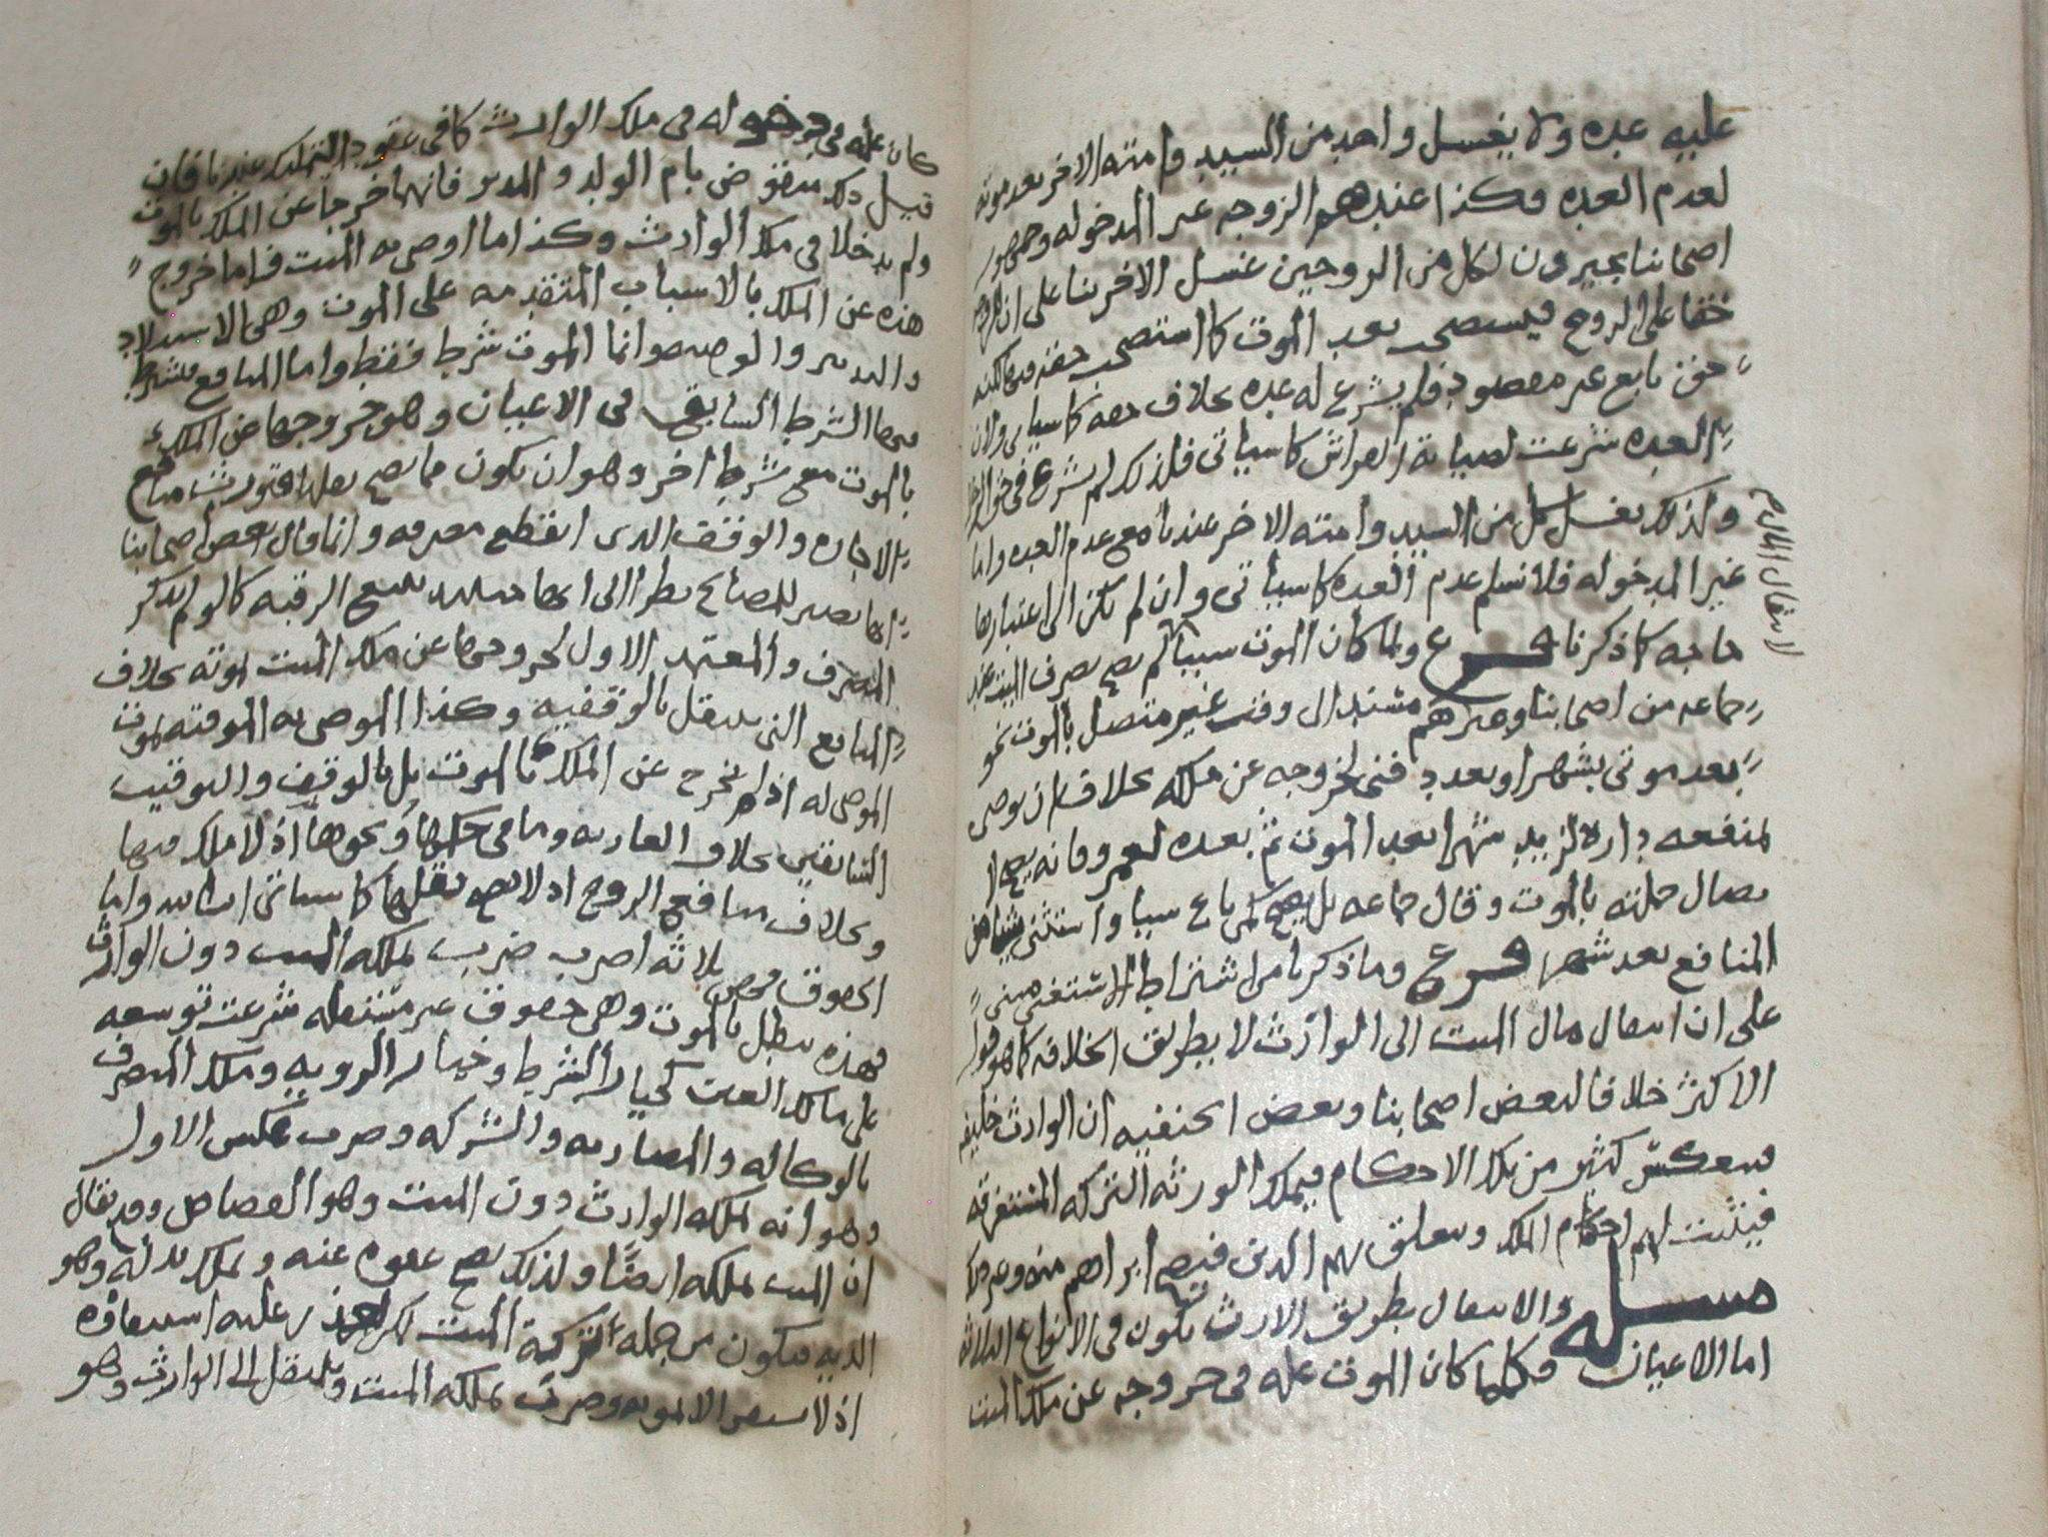 عليه عده ولا يغسل واحد من السيد وامته الاخر بعد موته
لعدم العده وكذا عندهم الزوجه عير المدخوله وجمهور
اصحابنا يجيرون لكل من الروجين غسل الاخر بنا على ان
حقا على الروح فيستصحب بعد الموت كما استصحب حقه
حق تابع عير مقصود فلم يشرع له عده بخلاف حقه كما سياتى ولان
العده شرعت لصيانة الفراش كما سياتى فلذلك لم يشرع فى حق
وكذلك يغسل كل من السيد وامته الاخر عندنا مع عدم العده واما
غير المدخوله فلا نسلم عدم العده كما سياتى وان لم يكن الى اعتبارها
حاجه كما ذكرنا فرع ولما كان الموت سببا لم يصح تصرف الميت عند
جماعه من اصحابنا وعيرهم مستند الى وقت غير متصل بالموت نحو
بعد موتى بشهر او بعد فتى لخروجه عن ملكه بخلاف ان يوصى
لمنفعه داره لزيد شهرا بعد الموت ثم بعده لعمرو فانه يصح
تصال جملته بالموت وقال جماعه بل يصح كمن باع سيا واستثنى
المنافع بعد شهر فرع وما ذكرنا من اشتراط الا ستغنى مبنى
على ان انتقال مال الميت الى الوارث لا بطريق الخلافه كما هو قول
الاكثر خلافا لبعض اصحابنا وبعض الحنفيه ان الوارث خليفه
فينعكس كثير من تلك الاحكام فيملك الورثه التركه المستغرقه
فيثبت لهم احكام الملك ويتعلق بهم الدين فيصح ابراهم منه
مسله والانتقال بطريق الارث يكون فى الانواع الثلاثه
اما الاعيان فكلما كان الموت عله فى خروجه عن ملك الميت
لانتقال المال
كان عله فى دخوله فى ملك الوارث كما فى عقود التمليك عندنا فان
قيل ذلك منقوض بام الولد والمدبر فانهما خرجا عن الملك بالموت
ولم يدخلا فى ملك الوارث وكذا ما اوصى به الميت قلنا ما خروج
هذه عن الملك بالاسباب المتقدمه على الموت وهى الاستيلاد
والتدبير والوصيه وانما الموت شرط فقط واما المنافع فيشترط
فيها الشرط السابق فى الاعيان وهو خروجها عن الملك
بالموت مع شرط اخر وهو ان يكون مما يصح نقلها فتورث منافع
الاجاره والوقف الذى انقطع مصرفه وانما قال بعض اصحابنا
انها تصير للمصالح نظرا الى انها تتبع الرقبه كما لو لم يذكر
المصرف والمعتمد الاول لخروجها عن ملك الميت بموته بخلاف
المنافع التى تنتقل بالوقفيه وكذا الموصى به الموقته بموت
الموصى له اذ لم يخرج عن الملك بالموت بل بالوقف والتوقيت
السابقين بخلاف العاريه وما فى حكمها ونحوها اذ لا ملك فيها
وبخلاف منافع الزوج اذ لا يصح نقلها كما سياتى واما
الحقوق فهى ثلاثه اضرب ضرب يملكه الميت دون الوارث
فهذه تبطل بالموت وهى حقوق عير مستقله شرعت توسعه
على مالك العين كخيار الشرط وخيار الرويه وملك التصرف
بالوكاله والمضاربه والشركه وضرب عكس الاول
وهو انه يملكه الوارث دون الميت وهو القصاص وقد يقال
ان الميت يملكه ايضا ولذلك يصح عفوه عنه ويملك بدله وهو
الديه فيكون من جمله تركة الميت لكن تعذر عليه استيفاوه
اذ لا يستقر الا بموته وضرب يملكه الميت وينتقل الى الوارث وهو